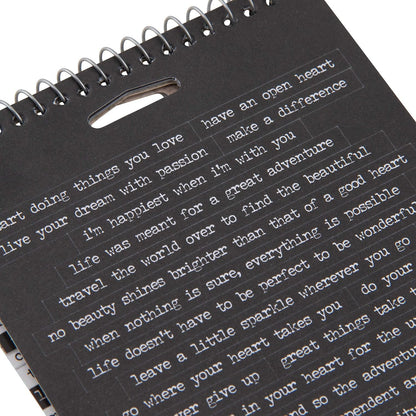 art doing things you love have an open heart
live your dream with passion make a difference
i'm happiest when i'm with you
life was meant for a great adventure
travel the world over to find the beautiful
no beauty shines brighter than that of a good heart
when nothing is sure, everything is possible
life doesn't have to be perfect to be wonderful
leave a little sparkle wherever you go
go where your heart takes you do your
never give up great things take
in your heart for the
and so the adventure
dependent